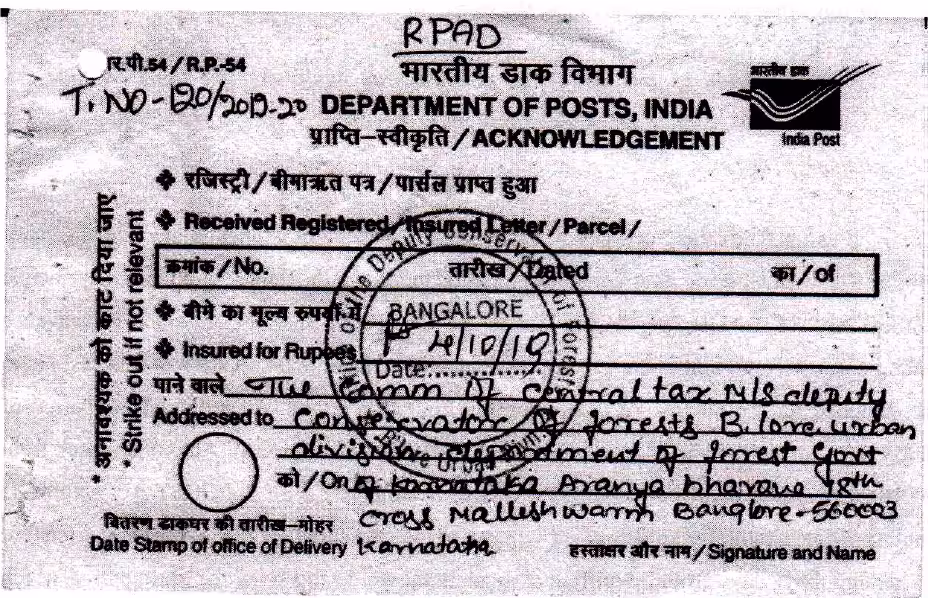 RPAD
र.पी.54/R.P.-54
भारतीय डाक विभाग
भारतीय डाक
T. NO-120/2019-20 DEPARTMENT OF POSTS, INDIA
प्राप्ति–स्वीकृति/ACKNOWLEDGEMENT
India Post
❖ रजिस्ट्री/बीमाऋत पत्र/पार्सल प्राप्त हुआ
❖ Received Registered/Insured Letter/Parcel/
क्रमांक/No. तारीख/Dated का/of
❖ बीमे का मूल्य रुपयों में
❖ Insured for Rupees
* अनावश्यक को काट दिया जाए
* Strike out if not relevant
the Deputy Conservator of Forests
BANGALORE
4/10/19
Date
Urban
पाने वाले The Comm of Central tax M/s deputy
Addressed to Conservator of forrests B.lore urban
division department of forest Govt
को/On of Karnataka Aranya bhavana 18th
Cross Malleshwarm Banglore-560003
वितरण डाकघर की तारीख–मोहर
Date Stamp of office of Delivery Karnataka
हस्ताक्षर और नाम/Signature and Name